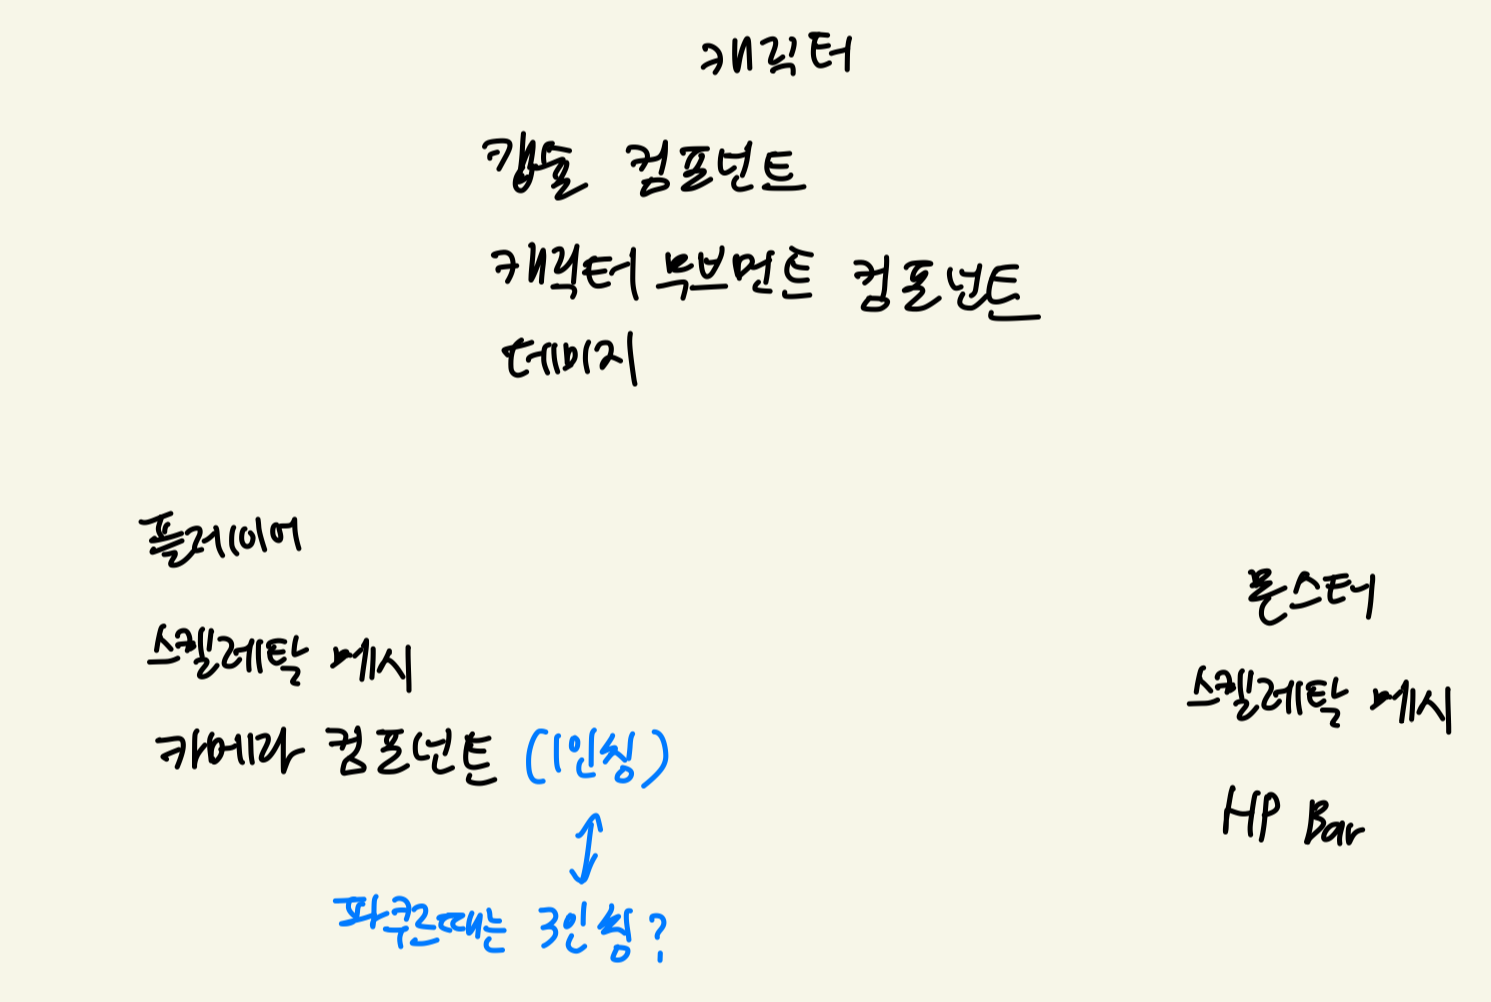 캐릭터
캡슐 컴포넌트
캐릭터 무브먼트 컴포넌트
데미지
플레이어
스켈레탈 메시
카메라 컴포넌트 (1인칭)
파쿠르때는 3인칭?
몬스터
스켈레탈 메시
HP Bar